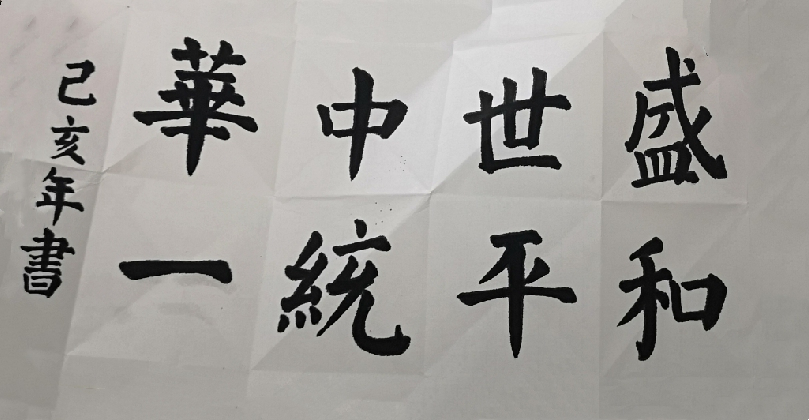 盛世中華
和平統一
己亥年書